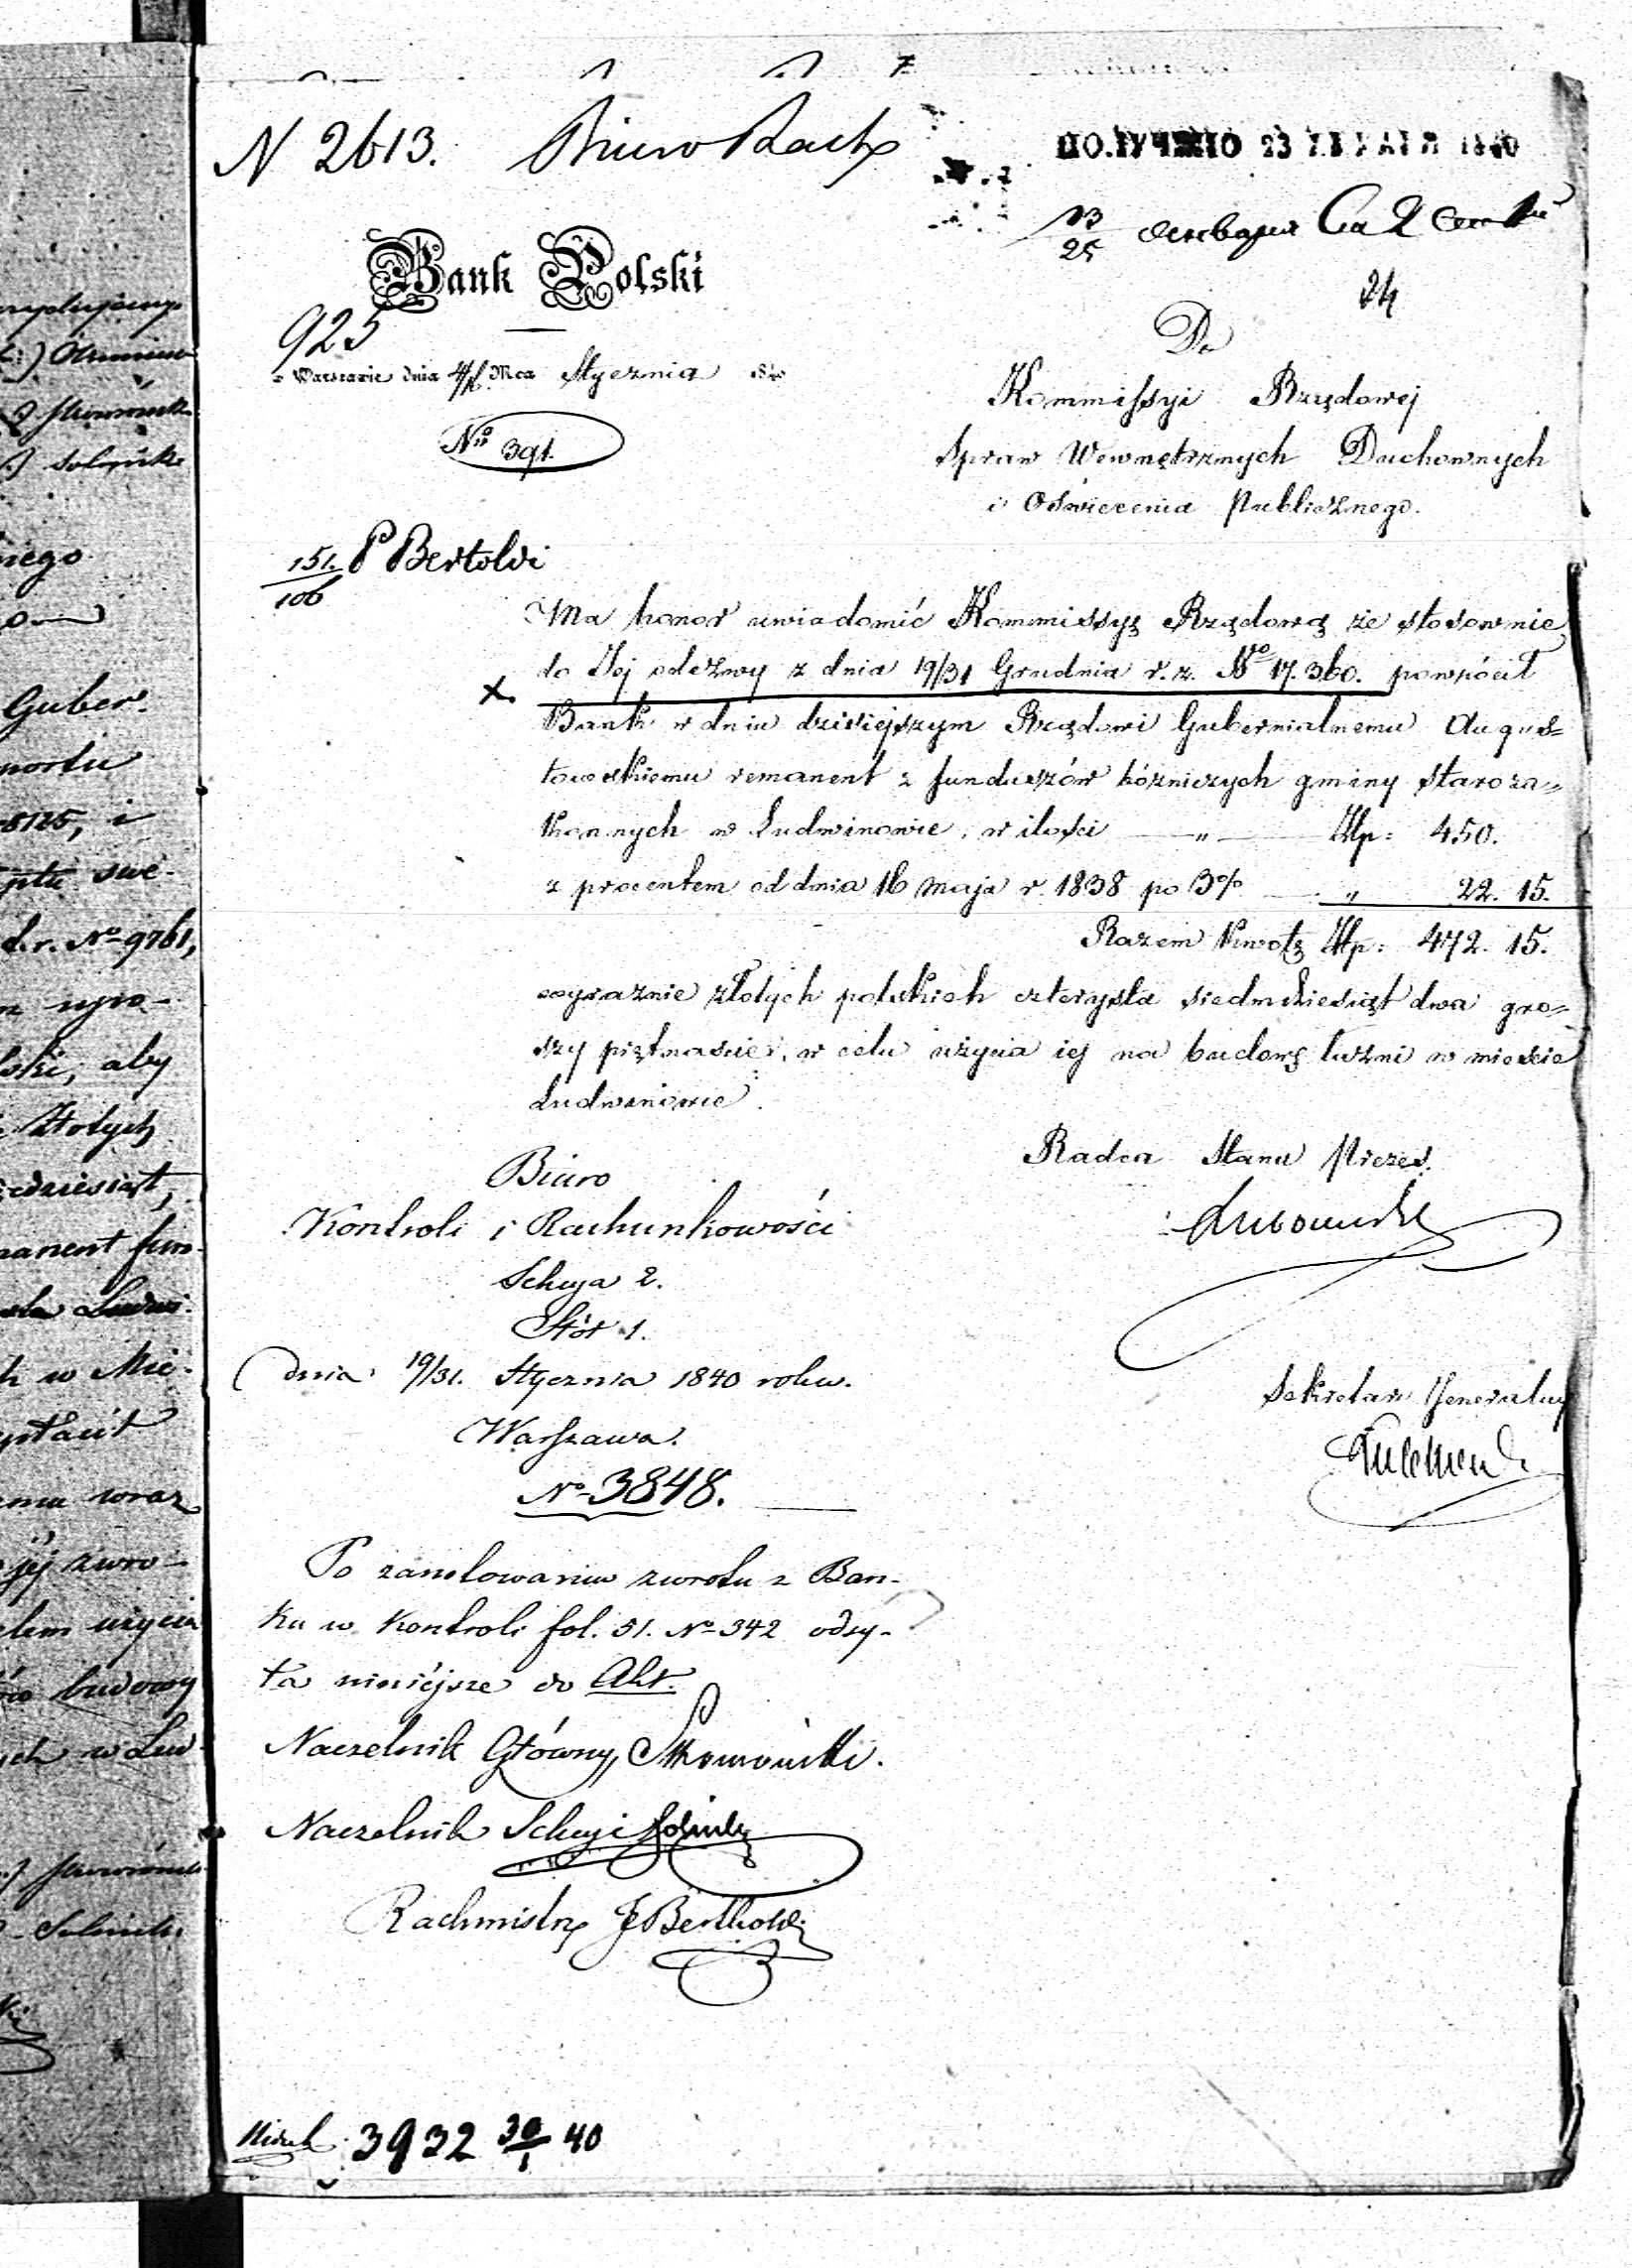 N 2613. Biuro Rach
ПОЛУЧЕНО 23 ЯНВАРЯ 1840
13/25 января
24
Bank Polski
925
w Warszawie dnia Mca Stycznia 1840
No 391.
Do
Kommissyi Rządowej
Spraw Wewnętrznych Duchownych
i Oświecenia Publicznego.
151./106 P Bertoldi
Ma honor uwiadomić Kommissyę Rządową że stosownie
do Jej odezwy z dnia 19/31 Grudnia r. z. No 17.360. powrócił
Bank w dniu dzisiejszym Rządowi Gubernialnemu Augus=
towskiemu remanent z funduszów bóżniczych gminy staroza=
konnych w Ludwinowie, w ilości — „ — Złp: 450.
z procentem od dnia 16 maja r. 1838 po 3% — „ 22. 15.
Razem kwotę Złp: 472. 15.
wyraźnie złotych polskich czterysta siedmdziesiąt dwa gro=
szy piętnaście, w celu użycia jej na budowę łaźni w mieście
Ludwinowie.
Radca Stanu Prezes.
Lubowidzki
Sekretarz Jeneralny
Biuro
Kontroli i Rachunkowości
Sekcya 2.
Stół 1.
dnia 19/31. Stycznia 1840 roku.
Warszawa.
No 3848.
Po zanotowaniu zwrotu z Ban-
ku w Kontroli fol. 51. No 342 odsy-
ła niniejsze do Akt.
Naczelnik Główny,
Naczelnik Sekcyi
Rachmistrz J Bertholdi
3932 30/1 40